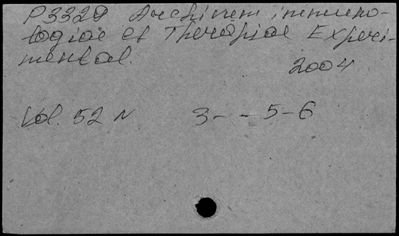 P3329 Archivum immuno-
logiae et Therapiae Experi-
mental.
2004
Vol. 52 N 3 - - 5-6